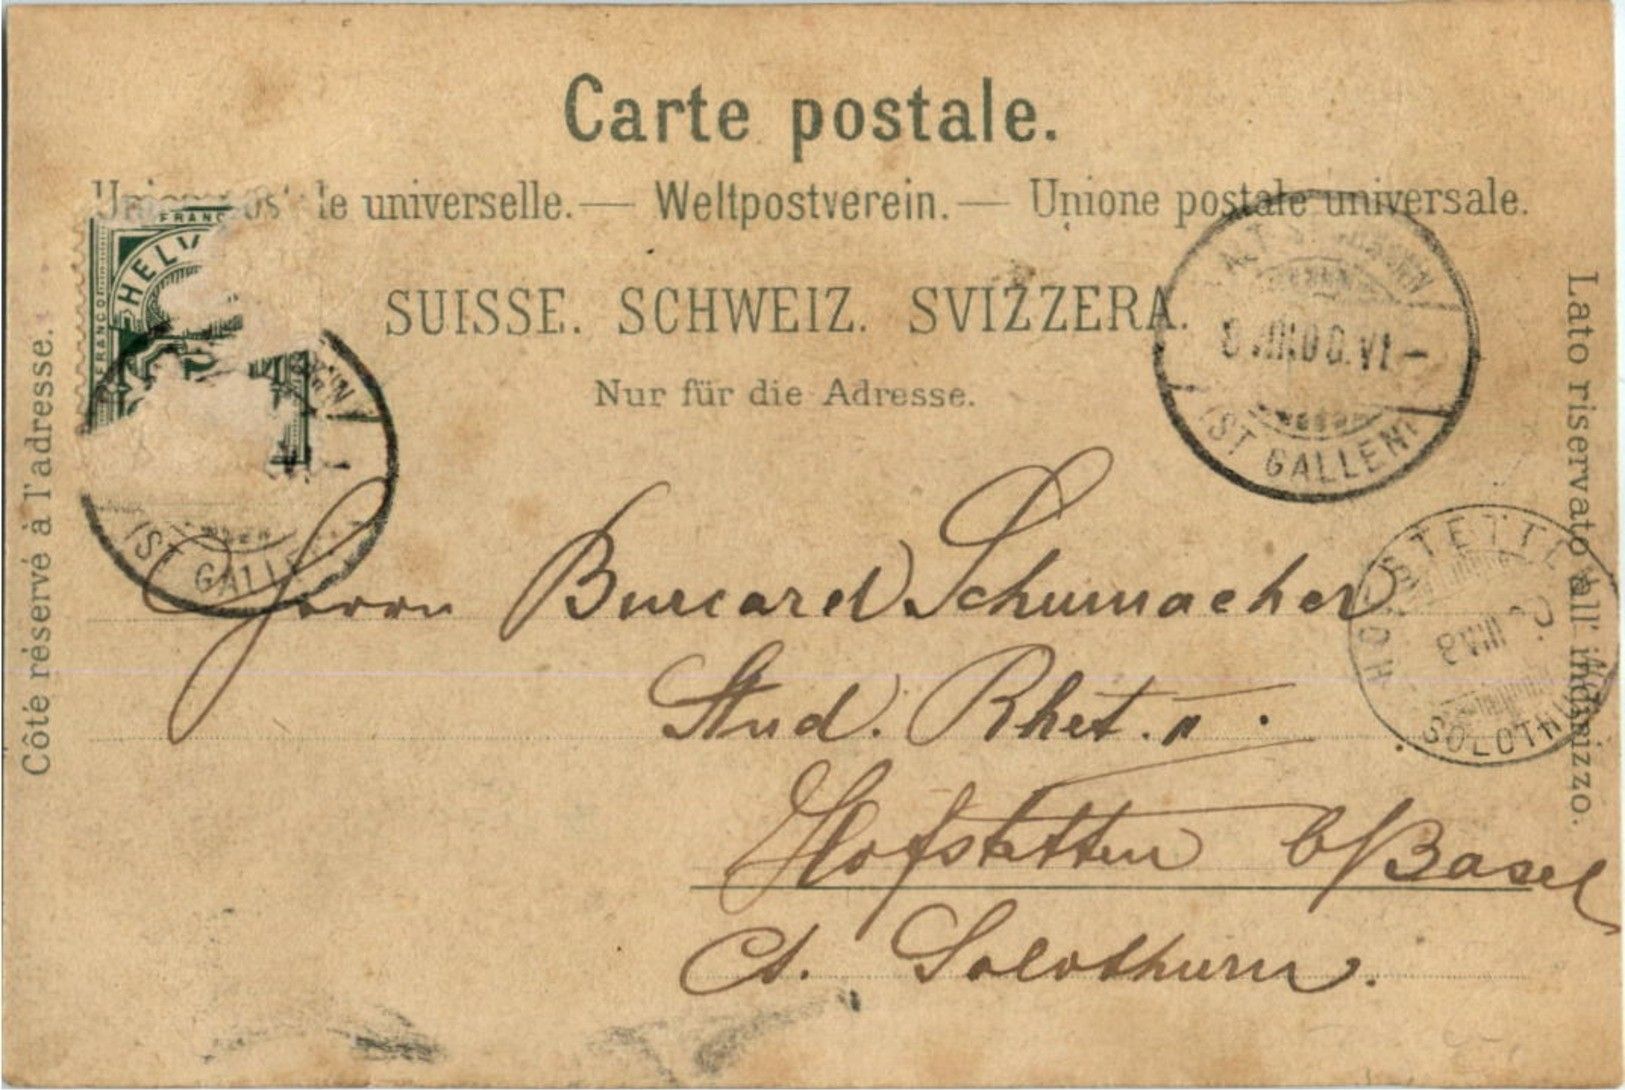 Carte postale.
le universelle. — Weltpostverein. — Unione postale universale.
SUISSE. SCHWEIZ. SVIZZERA.
Nur für die Adresse.
Côté réservé à l'adresse.
Lato riservato all' indirizzo.
FRANCO
HELV
(ST GALLEN)
8.VIII.06.VI
(ST GALLEN)
HOFSTETTEN
8 VIII
SOLOTHURN
Herrn Burcard Schumacher
Stud. Rhet. II.
Hofstetten b/Basel
Ct. Solothurn.